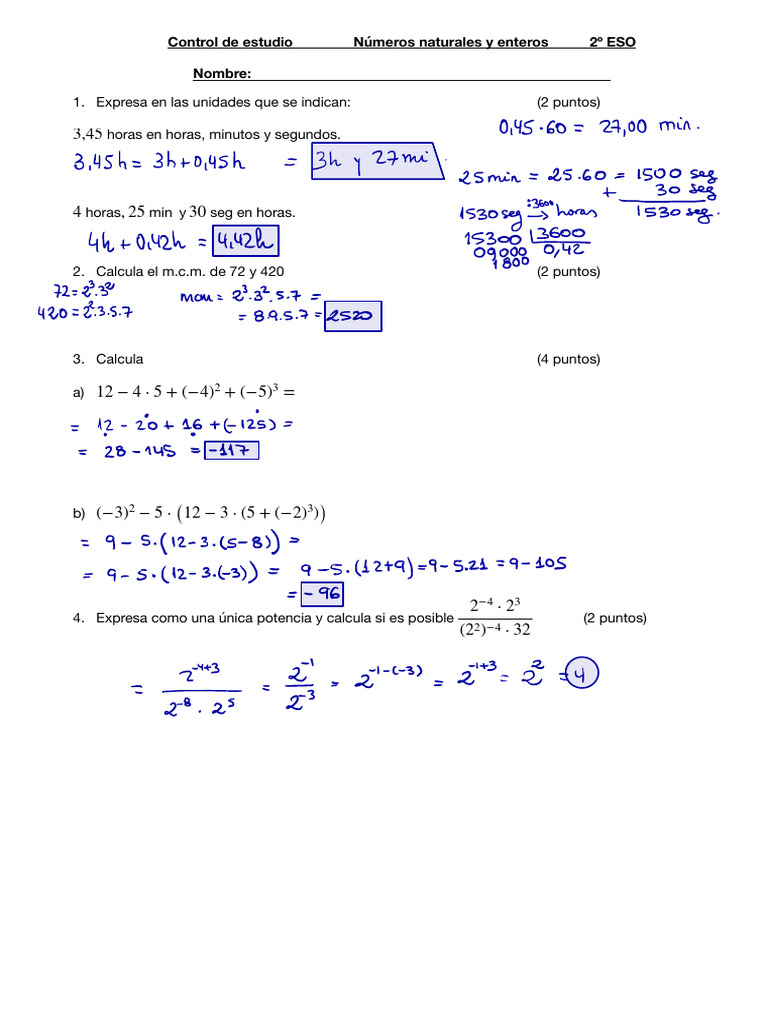 Control de estudio Números naturales y enteros 2º ESO
Nombre:
1. Expresa en las unidades que se indican: (2 puntos)
3,45 horas en horas, minutos y segundos.
0,45·60 = 27,00 min.
3,45h = 3h + 0,45h = 3h y 27 mi
25 min = 25·60 = 1500 seg
+ 30 seg
1530 seg.
4 horas, 25 min y 30 seg en horas.
1530 seg :3600→ horas
4h + 0,42h = 4,42h
15300 3600
09000 0,42
1800
2. Calcula el m.c.m. de 72 y 420 (2 puntos)
72 = 2³·3²
420 = 2²·3·5·7
mcm = 2³·3²·5·7 =
= 8·9·5·7 = 2520
3. Calcula (4 puntos)
a) 12 − 4 · 5 + (−4)² + (−5)³ =
= 12 - 20 + 16 + (-125) =
= 28 - 145 = -117
b) (−3)² − 5 · (12 − 3 · (5 + (−2)³))
= 9 - 5·(12 - 3·(5-8)) =
= 9 - 5·(12-3·(-3)) = 9 - 5·(12+9) = 9 - 5·21 = 9 - 105
= -96
4. Expresa como una única potencia y calcula si es posible 2⁻⁴ · 2³ / (2²)⁻⁴ · 32 (2 puntos)
= 2⁻⁴⁺³ / 2⁻⁸ · 2⁵ = 2⁻¹ / 2⁻³ = 2⁻¹⁻⁽⁻³⁾ = 2⁻¹⁺³ = 2² = 4